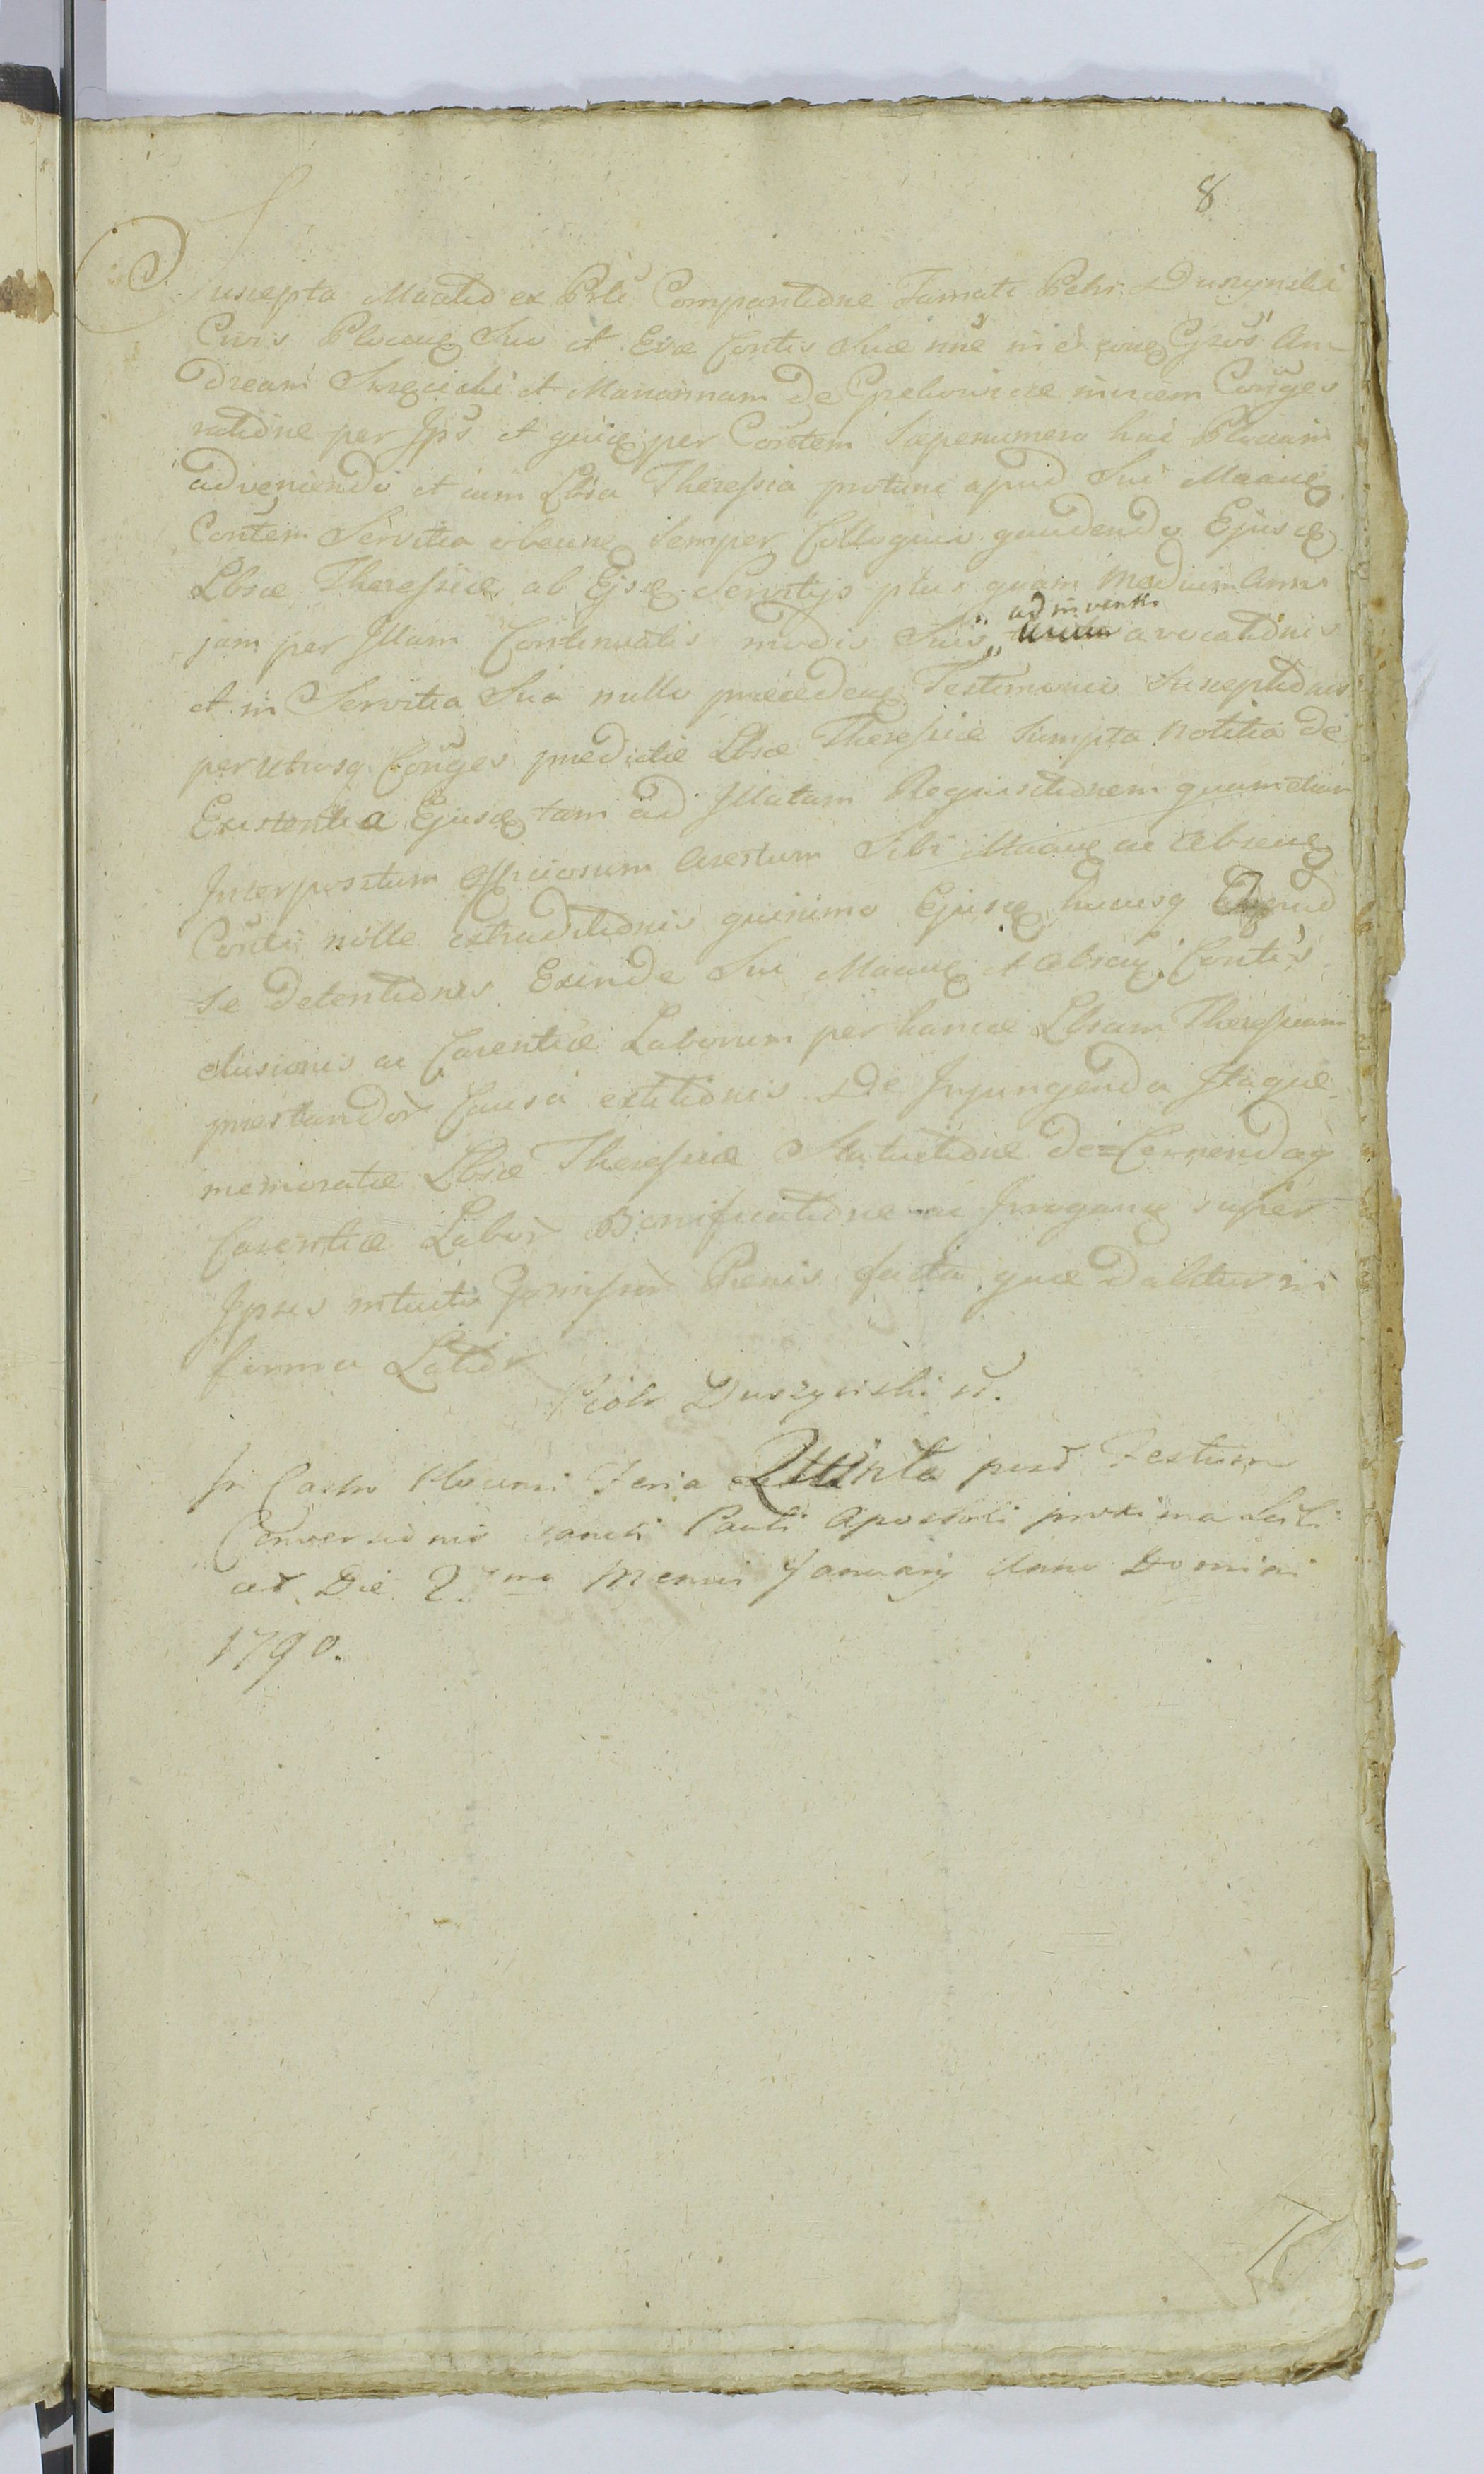 8
Suscepta Manitio ex Prli Comparitione Famati Petri Duszynski
Civis Plocen Suo et Evæ Contis Suæ nne in et cone Gsos An-
dream et Mariannam De invicem Conges
ratione per Ips et quicq per Contem Sæpenumero huc Plociam
adveniendo et cum Lbsa Theressia protunc apud Sui Maane
Contem Servitia obeune Semper Colloquio gaudendo Ejusq
Lbsæ Theressiæ ab Ejsq Servitijs plus quam Medium Anni
adinventis
jam per Illam Continuatis modis Suis avocationis
et in Servitia Sua nullo præceden Testimonio Susceptionis
per utrosq Conges prædictæ Lbsæ Theressiæ Sumpta notitia de
Existentia Ejusq tam ad Illatam Requisitionem quam etiam
Interpositum officiosum Arestum Sibi Maane ac Absene
Conti nolle extraditionis quinimo Ejusq hucusq apud
Se Detentionis Exinde Sui Maane et Absen Contis
elusionis ac Carentiæ Laborum per hancce Lbsam Theressiam
præstandor Causa extitionis De Injungenda Itaque
memoratæ Lbsæ Theressiæ Statuitione de=Cernendaq
Carentiæ Labor Bonificatione ac Irrogane super
Ipsis intuitu Pramissor Pænis facta, quæ Dabitur in
forma Latior
Piotr Duszyński
In Castro Plocensi Feria Quinta post Festum
Conversionis Sancti Pauli Apostoli proxima Scili
cet Die 27ma Mensis Januarij Anno Domini
1790.